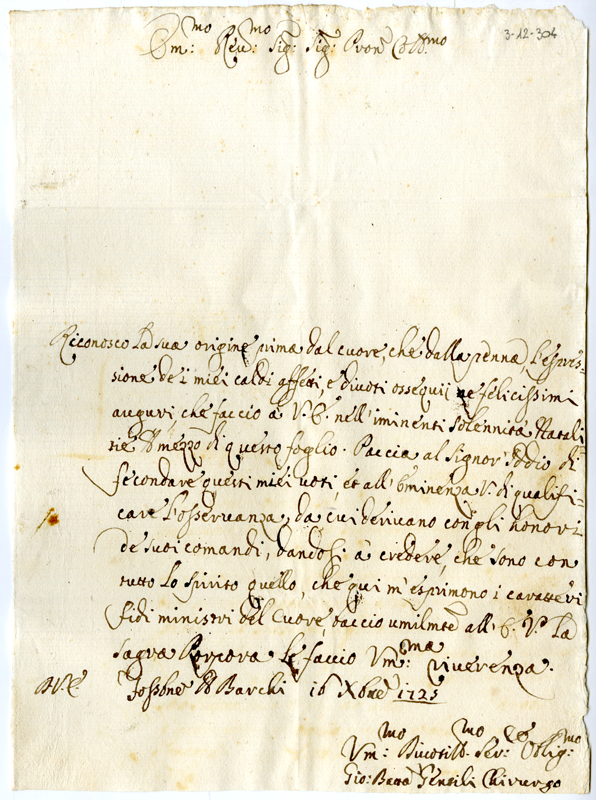 3-12-304
Em:mo Reu:mo Sig: Sig: Pron Col:mo
Riconosco la sua origine prima dal cuore, che dalla penna l'espres-
sione de i miei caldi affetti, e diuoti ossequij ne felicissimi
auguri, che faccio à V. E. nell'iminenti solennità Natali-
tie mezzo di questo foglio. Piaccia al Signor Iddio di
fecondare questi miei uoti, et all'Eminenza V. di qualifi-
care l'osseruanza, da cui deriuano con gli honori
de suoi comandi, dandosi à credere, che sono con
tutto lo spirito quello, che qui m'esprimono i caratteri
fidi ministri del cuore, baccio umilmte all'E. V. la
sagra Porpora le faccio Vm:ma riuerenza.
Di V. E. Fossone Barchi 16 Xbre 1725
Vm:mo Diuotiss:mo Ser: et Oblig:mo
Gio: Batta Gentili Chirurgo